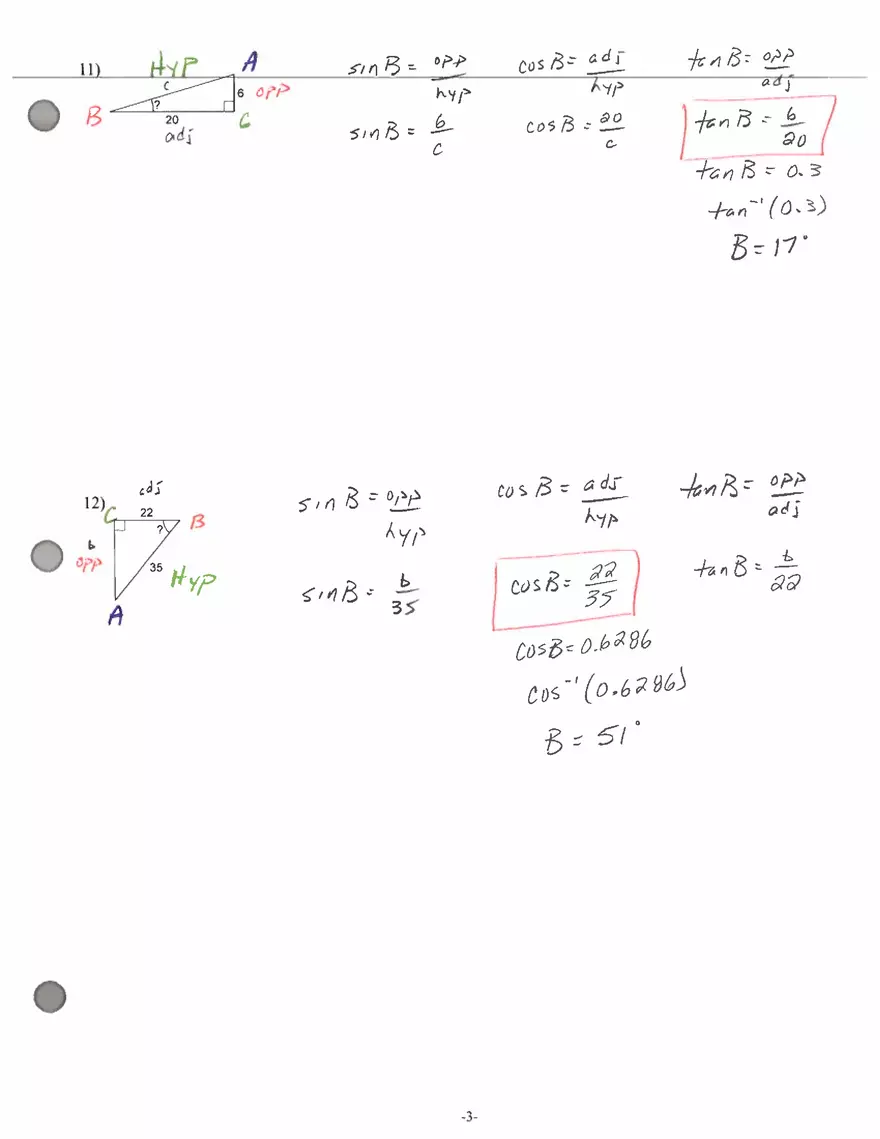 11) HYP A
c
6 opp
?
B 20 C
adj
sin B = opp/hyp
sin B = 6/c
cos B = adj/hyp
cos B = 20/c
tan B = opp/adj
tan B = 6/20
tan B = 0.3
tan⁻¹(0.3)
B = 17°
adj
12) C 22 B
?
b
opp
35 Hyp
A
sin B = opp/hyp
sin B = b/35
cos B = adj/hyp
cos B = 22/35
cos B = 0.6286
cos⁻¹(0.6286)
B = 51°
tan B = opp/adj
tan B = b/22
-3-